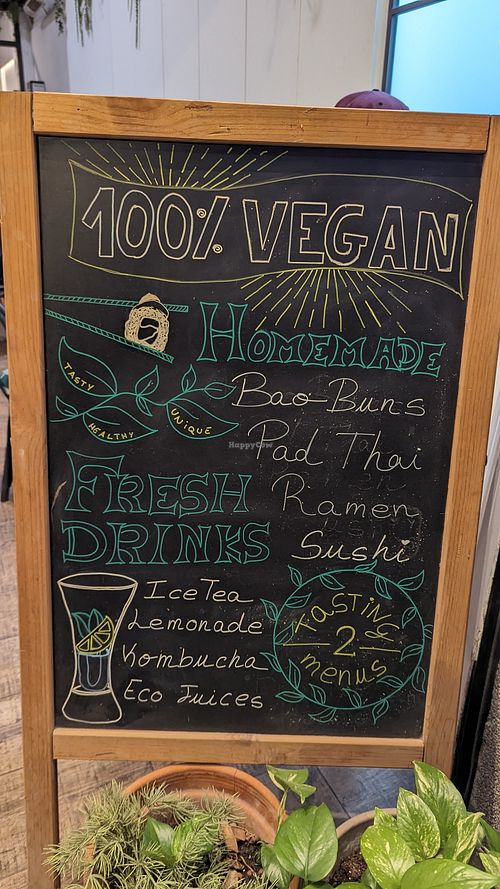 100% VEGAN
HOMEMADE
TASTY
HEALTHY
UNIQUE
Bao-Buns
Pad Thai
Ramen
Sushi
FRESH
DRINKS
Ice Tea
Lemonade
Kombucha
Eco Juices
TASTING
2
menus
HappyCow